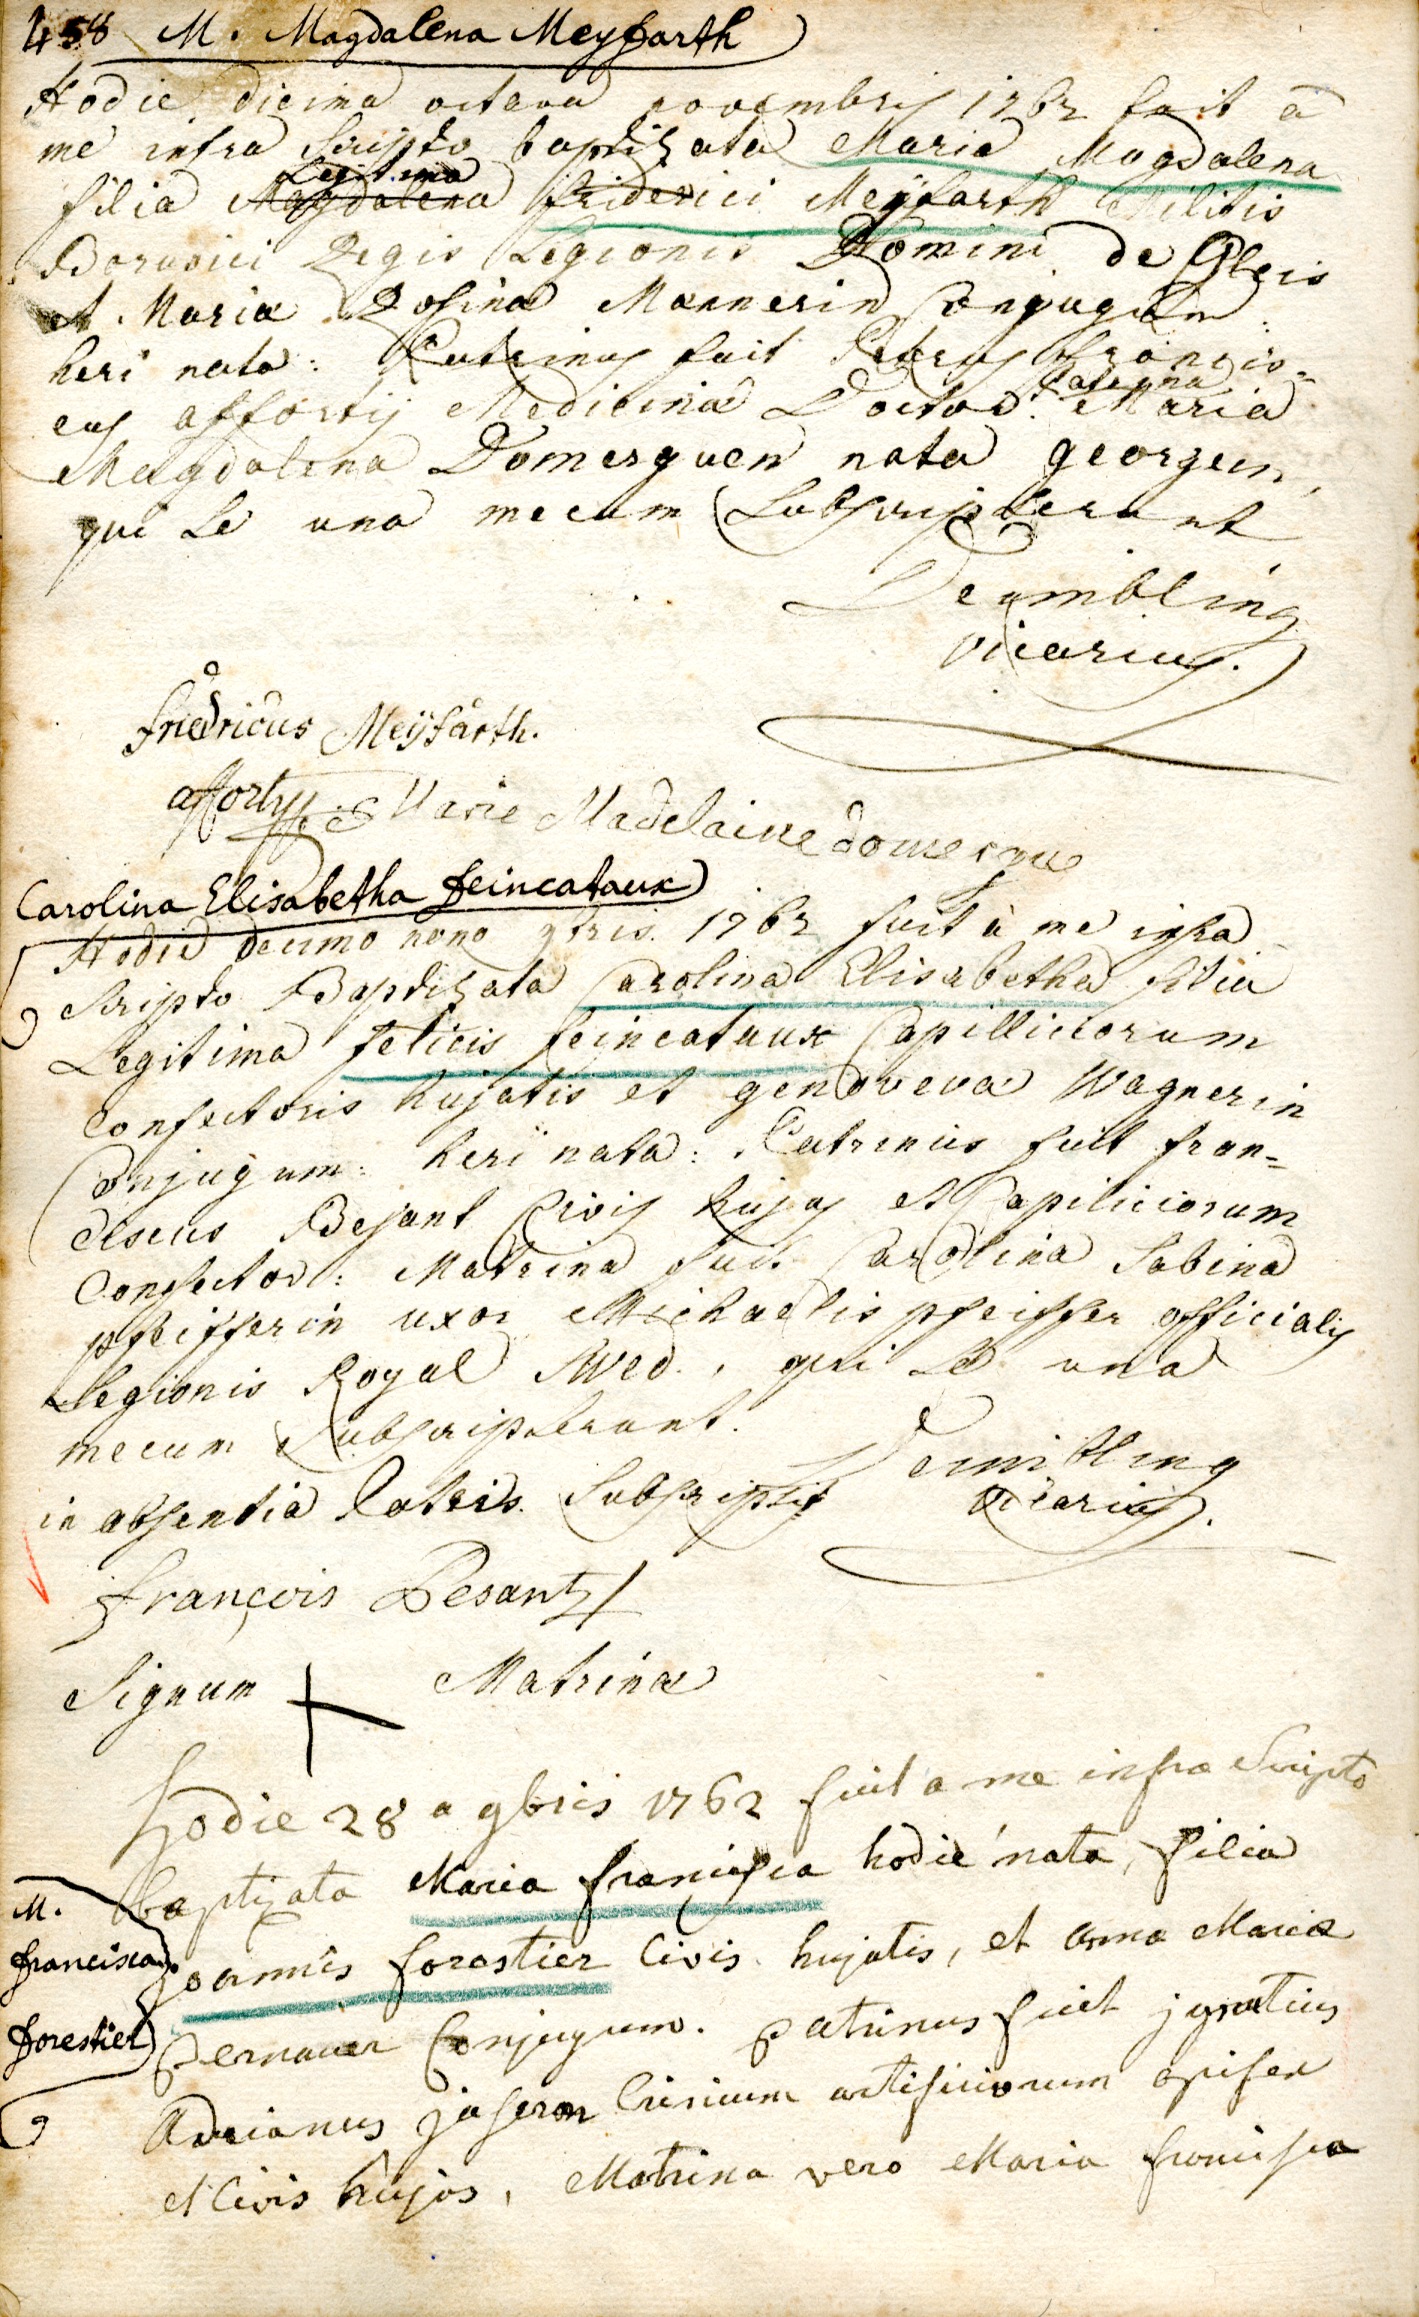 458 M. Magdalena Meyfarth
Hodie dicima octava novembris 1762 fuit a
me infra scripto baptizata Maria Magdalena
Legitima
filia Magdalena friderici Meÿfarth Militis
Borusici Regis Legionis Domini de Gleis
et Mariæ Rosinæ Mannerin Conjugum
heri nata: Patrinus fuit Petrus Francis=
cus affortij Medicinæ Doctor. Maria
Magdalena Domerguen nata georgen,
qui se una mecum subscripserunt
Deumbling
vicarius.
friedricus Meÿfarth.
afforty Marie Madelaine domergue
Carolina Elisabetha feincataux
Hodie decimo nono 9bris. 1762 fuit à me infra
scripto Baptizata Carolina Elisabetha filia
Legitima felicis feincataux Capilliciorum
Confectoris hujatis et genoveva Wagnerin
Conjugum: heri nata: Patrinus fuit fran=
ciscus Besant Civis hujas et Capiliciorum
Confector: Matrina fuit Carolina Sabina
pfeifferin uxor Michaelis pfeiffer officialis
Legionis Royal Sved., qui se una
mecum subscripserunt.
Deumbling
vicarius.
in absentia Patris subscripsit
françois Besant
Signum + Matrinæ
hodie 28 a 9bris 1762 fuit a me infra scripto
baptizata Maria francisca hodie nata, filia
M.
francisca
forestier
joannis forestier Civis hujatis, et anna Maria
Conjugum. patrinus fuit jgnatius
Adrianus artificiorum opifex
et Civis hujas, Matrina vero Maria francisca